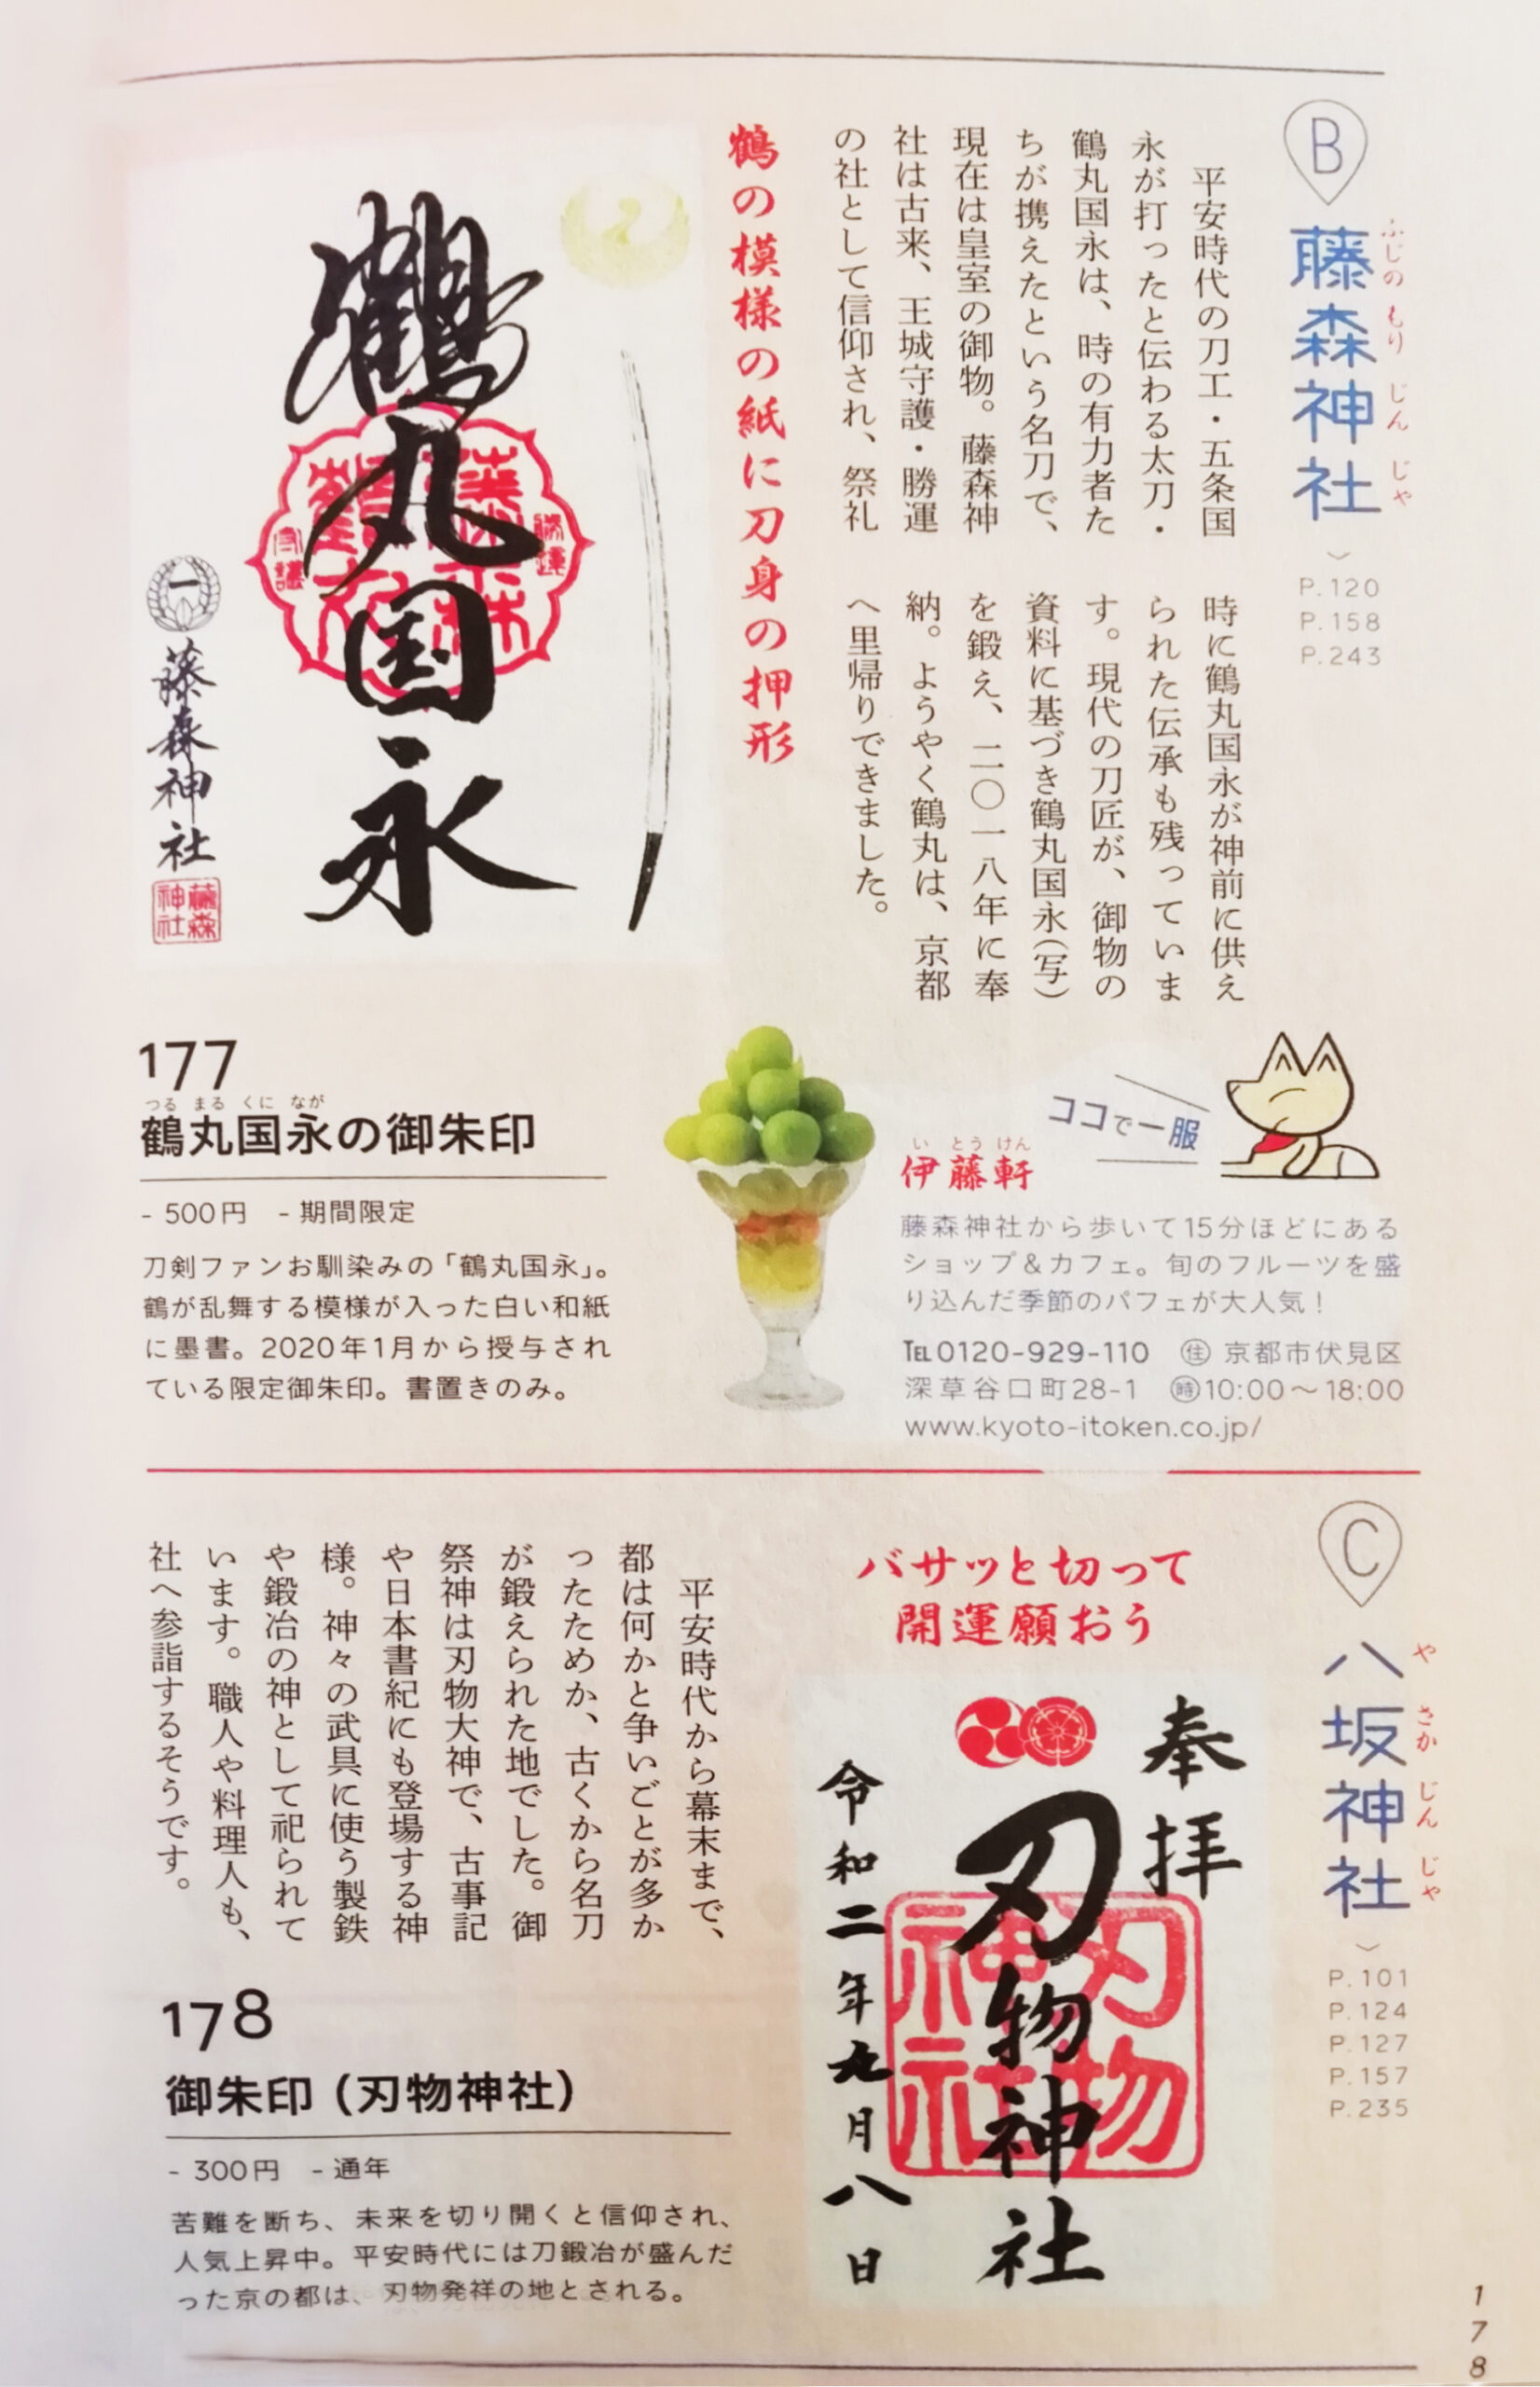 B
藤森神社
ふじのもりじんじゃ
P.120
P.158
P.243
平安時代の刀工・五条国
永が打ったと伝わる太刀・
鶴丸国永は、時の有力者た
ちが携えたという名刀で、
現在は皇室の御物。藤森神
社は古来、王城守護・勝運
の社として信仰され、祭礼
時に鶴丸国永が神前に供え
られた伝承も残っていま
す。現代の刀匠が、御物の
資料に基づき鶴丸国永(写)
を鍛え、二〇一八年に奉
納。ようやく鶴丸は、京都
へ里帰りできました。
鶴の模様の紙に刀身の押形
鶴丸国永
勝運
守護
一
藤森神社
藤森
神社
177
つるまるくになが
鶴丸国永の御朱印
- 500円 - 期間限定
刀剣ファンお馴染みの「鶴丸国永」。
鶴が乱舞する模様が入った白い和紙
に墨書。2020年1月から授与され
ている限定御朱印。書置きのみ。
ココで一服
いとうけん
伊藤軒
藤森神社から歩いて15分ほどにある
ショップ&カフェ。旬のフルーツを盛
り込んだ季節のパフェが大人気!
TEL 0120-929-110 住 京都市伏見区
深草谷口町28-1 時 10:00〜18:00
www.kyoto-itoken.co.jp/
C
八坂神社
やさかじんじゃ
P.101
P.124
P.127
P.157
P.235
バサッと切って
開運願おう
奉拝
刃物神社
刃物
神社
令和二年九月八日
平安時代から幕末まで、
都は何かと争いごとが多か
ったためか、古くから名刀
が鍛えられた地でした。御
祭神は刃物大神で、古事記
や日本書紀にも登場する神
様。神々の武具に使う製鉄
や鍛冶の神として祀られて
います。職人や料理人も、
社へ参詣するそうです。
178
御朱印(刃物神社)
- 300円 - 通年
苦難を断ち、未来を切り開くと信仰され、
人気上昇中。平安時代には刀鍛冶が盛んだ
った京の都は、刃物発祥の地とされる。
178